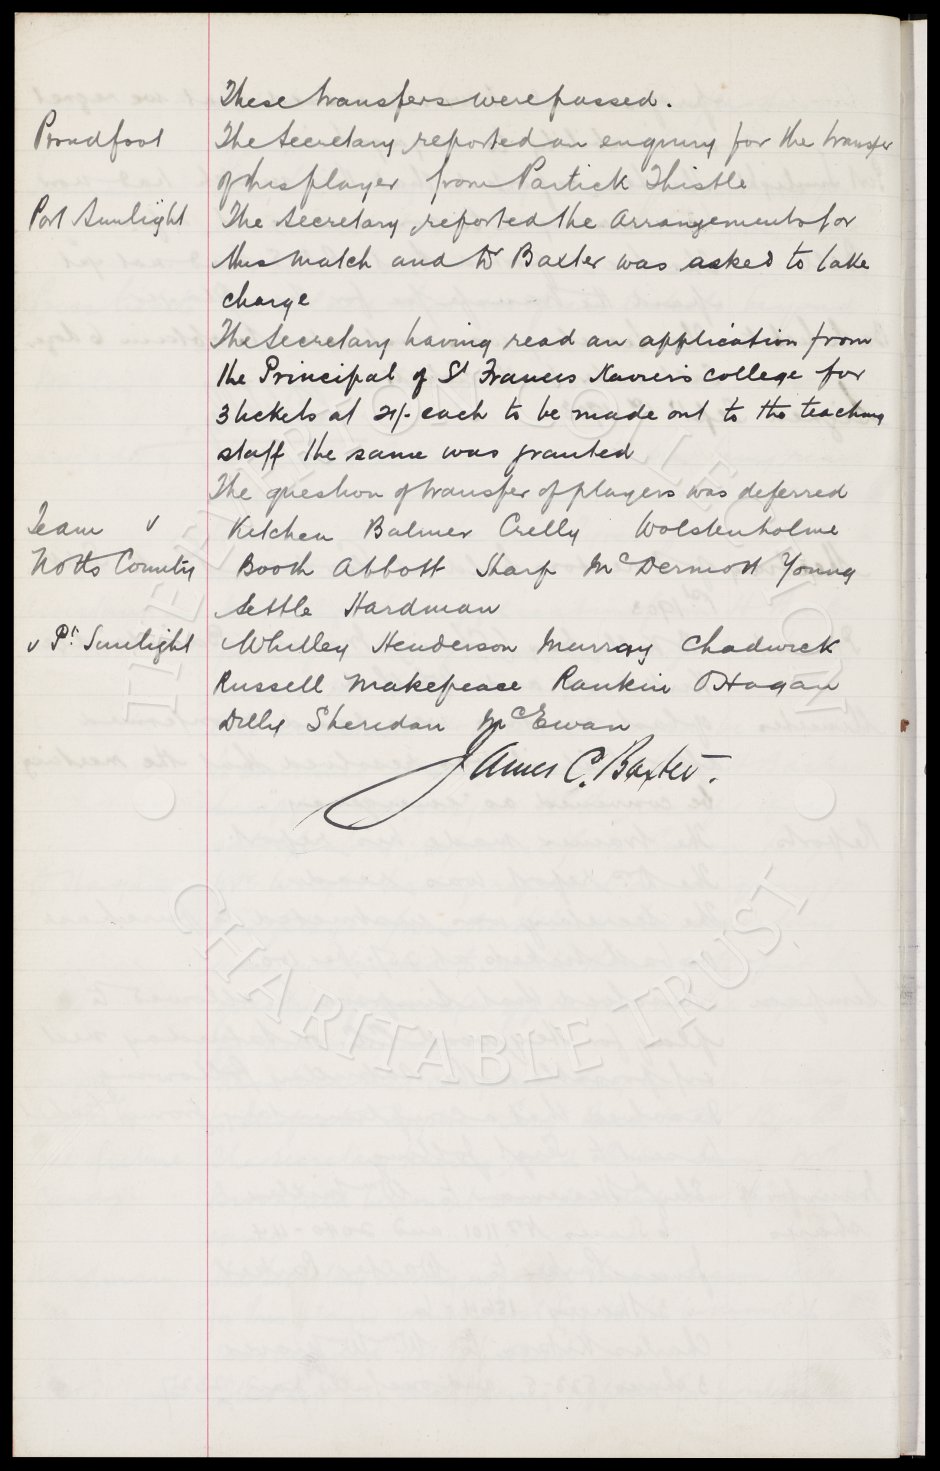 These transfers were passed.
Proudfoot The Secretary reported an enquiry for the transfer
of this player from Partick Thistle
Port Sunlight The Secretary reported the arrangements for
this match and Dr Baxter was asked to take
charge
The Secretary having read an application from
the Principal of St Francis Xavier's college for
3 tickets at 21/- each to be made out to the teaching
staff the same was granted
The question of transfer of players was deferred
Team v Kitchen Balmer Crelly Wolstenholme
Notts County Booth Abbott Sharp McDermott Young
Settle Hardman
v Pt Sunlight Whitley Henderson Murray Chadwick
Russell Makepeace Rankin O'Hagan
Dilly Sheridan McEwan
James C. Baxter.
THE EVERTON COLLECTION
CHARITABLE TRUST